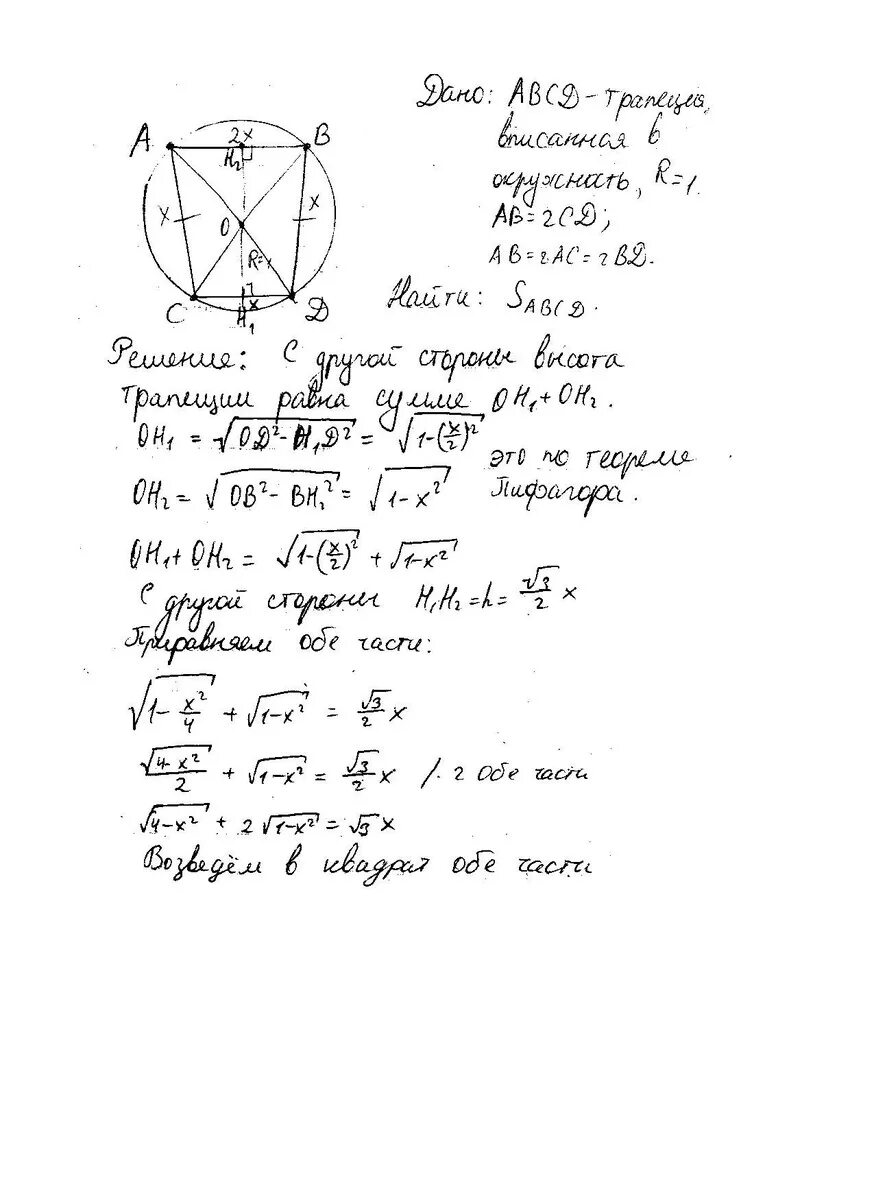 Дано: ABCD - трапеция,
вписанная в
окружнать, R=1.
AB=2CD;
AB=2AC=2BD.
Найти: S_ABCD.
A 2x B
H₂
x x
O
R=1
C x D
H₁
Решение: С другой стороны высота
трапеции равна сумме OH₁+OH₂.
OH₁ = √(OD²-H₁D²) = √(1-(x/2)²)
это по теореме
OH₂ = √(OB²-BH₂²) = √(1-x²) Пифагора.
OH₁+OH₂ = √(1-(x/2)²) + √(1-x²)
С другой стороны H₁H₂=h=√3/2 x
Приравняем обе части:
√(1-x²/4) + √(1-x²) = √3/2 x
√(4-x²)/2 + √(1-x²) = √3/2 x /·2 обе части
√(4-x²) + 2√(1-x²) = √3 x
Возведём в квадрат обе части